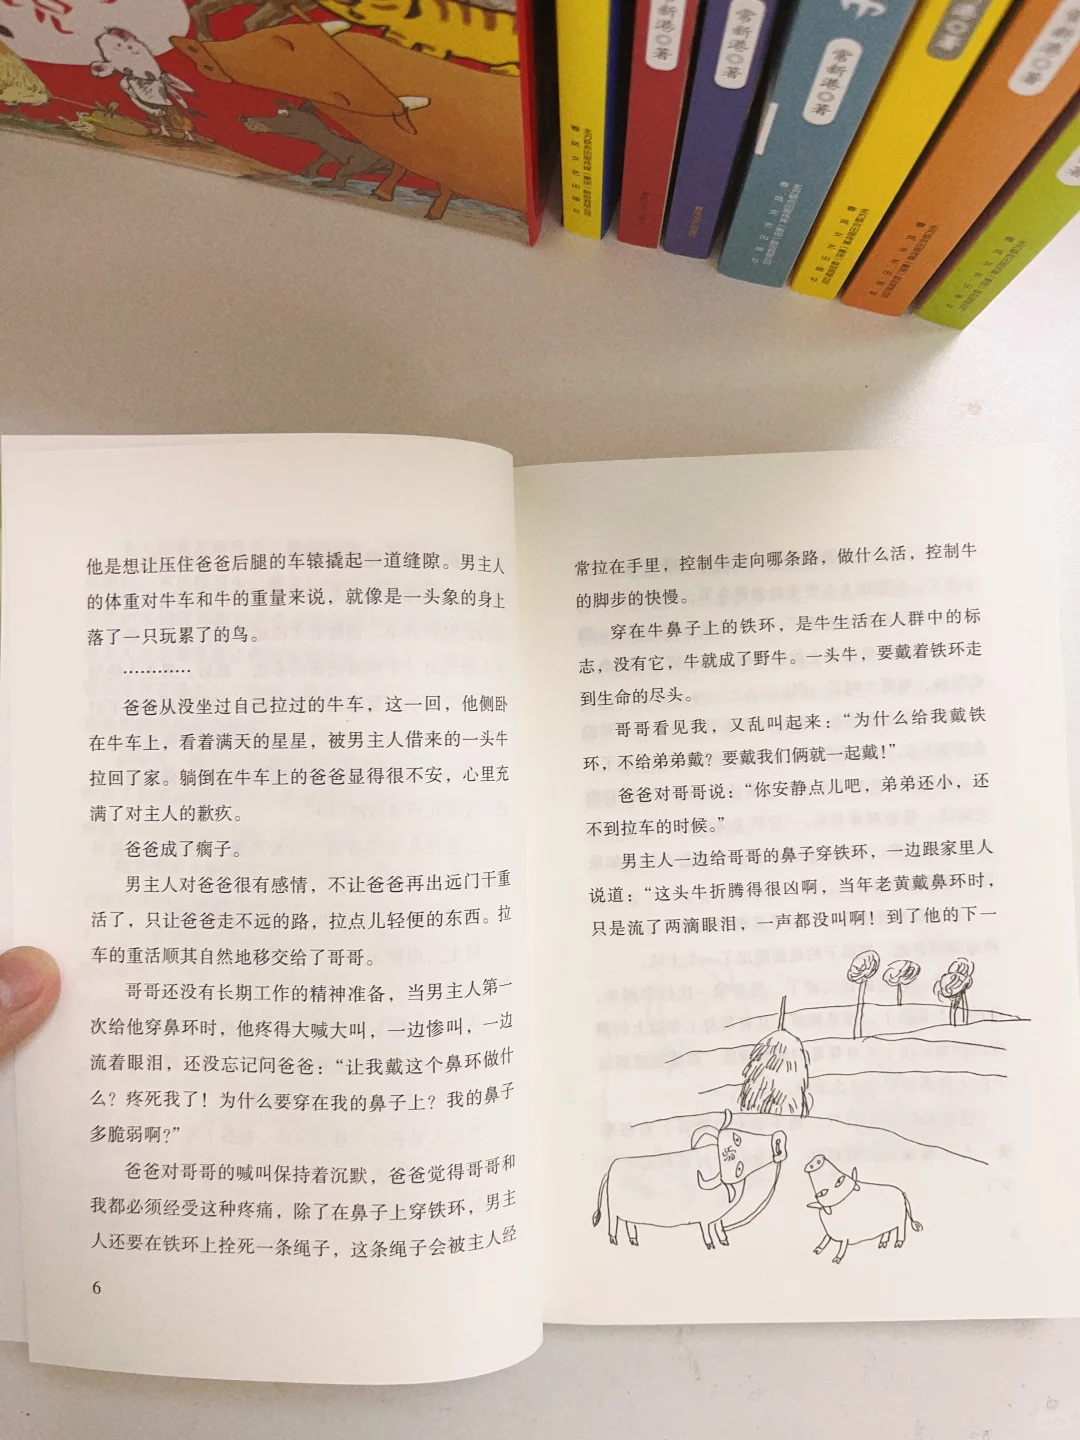 常新港◎著
常新港◎著
常新港◎著
春风文艺出版社
春风文艺出版社
春风文艺出版社
春风文艺出版社
春风文艺出版社
他是想让压住爸爸后腿的车辕撬起一道缝隙。男主人
的体重对牛车和牛的重量来说，就像是一头象的身上
落了一只玩累了的鸟。
…………
爸爸从没坐过自己拉过的牛车，这一回，他侧卧
在牛车上，看着满天的星星，被男主人借来的一头牛
拉回了家。躺倒在牛车上的爸爸显得很不安，心里充
满了对主人的歉疚。
爸爸成了瘸子。
男主人对爸爸很有感情，不让爸爸再出远门干重
活了，只让爸爸走不远的路，拉点儿轻便的东西。拉
车的重活顺其自然地移交给了哥哥。
哥哥还没有长期工作的精神准备，当男主人第一
次给他穿鼻环时，他疼得大喊大叫，一边惨叫，一边
流着眼泪，还没忘记问爸爸：“让我戴这个鼻环做什
么？疼死我了！为什么要穿在我的鼻子上？我的鼻子
多脆弱啊？”
爸爸对哥哥的喊叫保持着沉默，爸爸觉得哥哥和
我都必须经受这种疼痛，除了在鼻子上穿铁环，男主
人还要在铁环上拴死一条绳子，这条绳子会被主人经
6
常拉在手里，控制牛走向哪条路，做什么活，控制牛
的脚步的快慢。
穿在牛鼻子上的铁环，是牛生活在人群中的标
志，没有它，牛就成了野牛。一头牛，要戴着铁环走
到生命的尽头。
哥哥看见我，又乱叫起来：“为什么给我戴铁
环，不给弟弟戴？要戴我们俩就一起戴！”
爸爸对哥哥说：“你安静点儿吧，弟弟还小，还
不到拉车的时候。”
男主人一边给哥哥的鼻子穿铁环，一边跟家里人
说道：“这头牛折腾得很凶啊，当年老黄戴鼻环时，
只是流了两滴眼泪，一声都没叫啊！到了他的下一